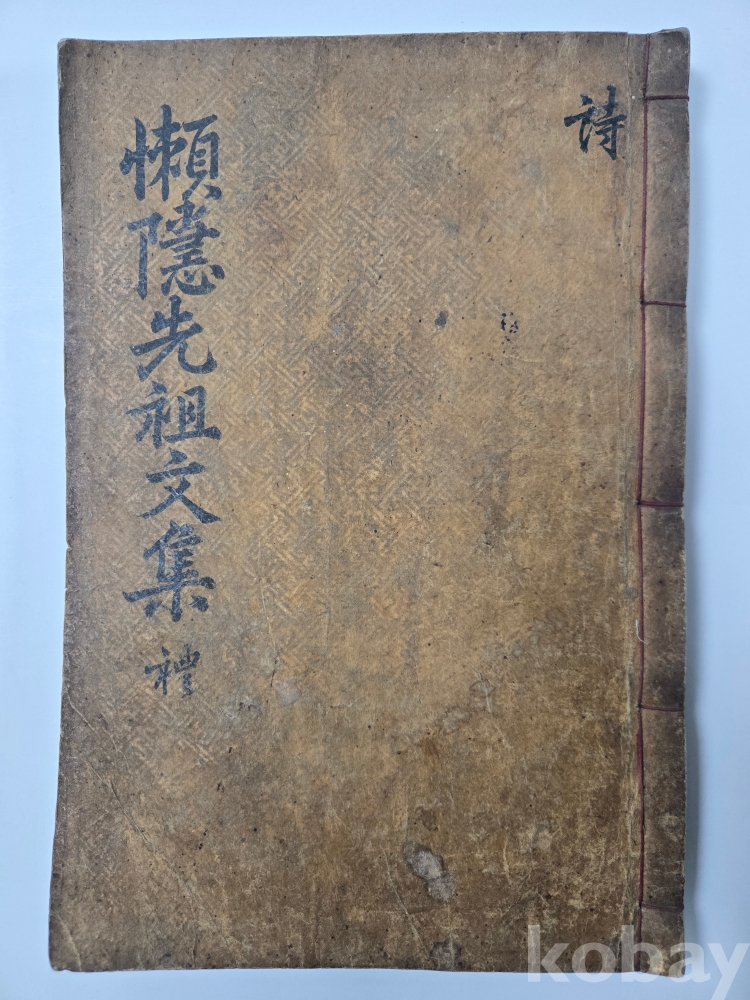 詩
懶隱先祖文集 禮
kobay